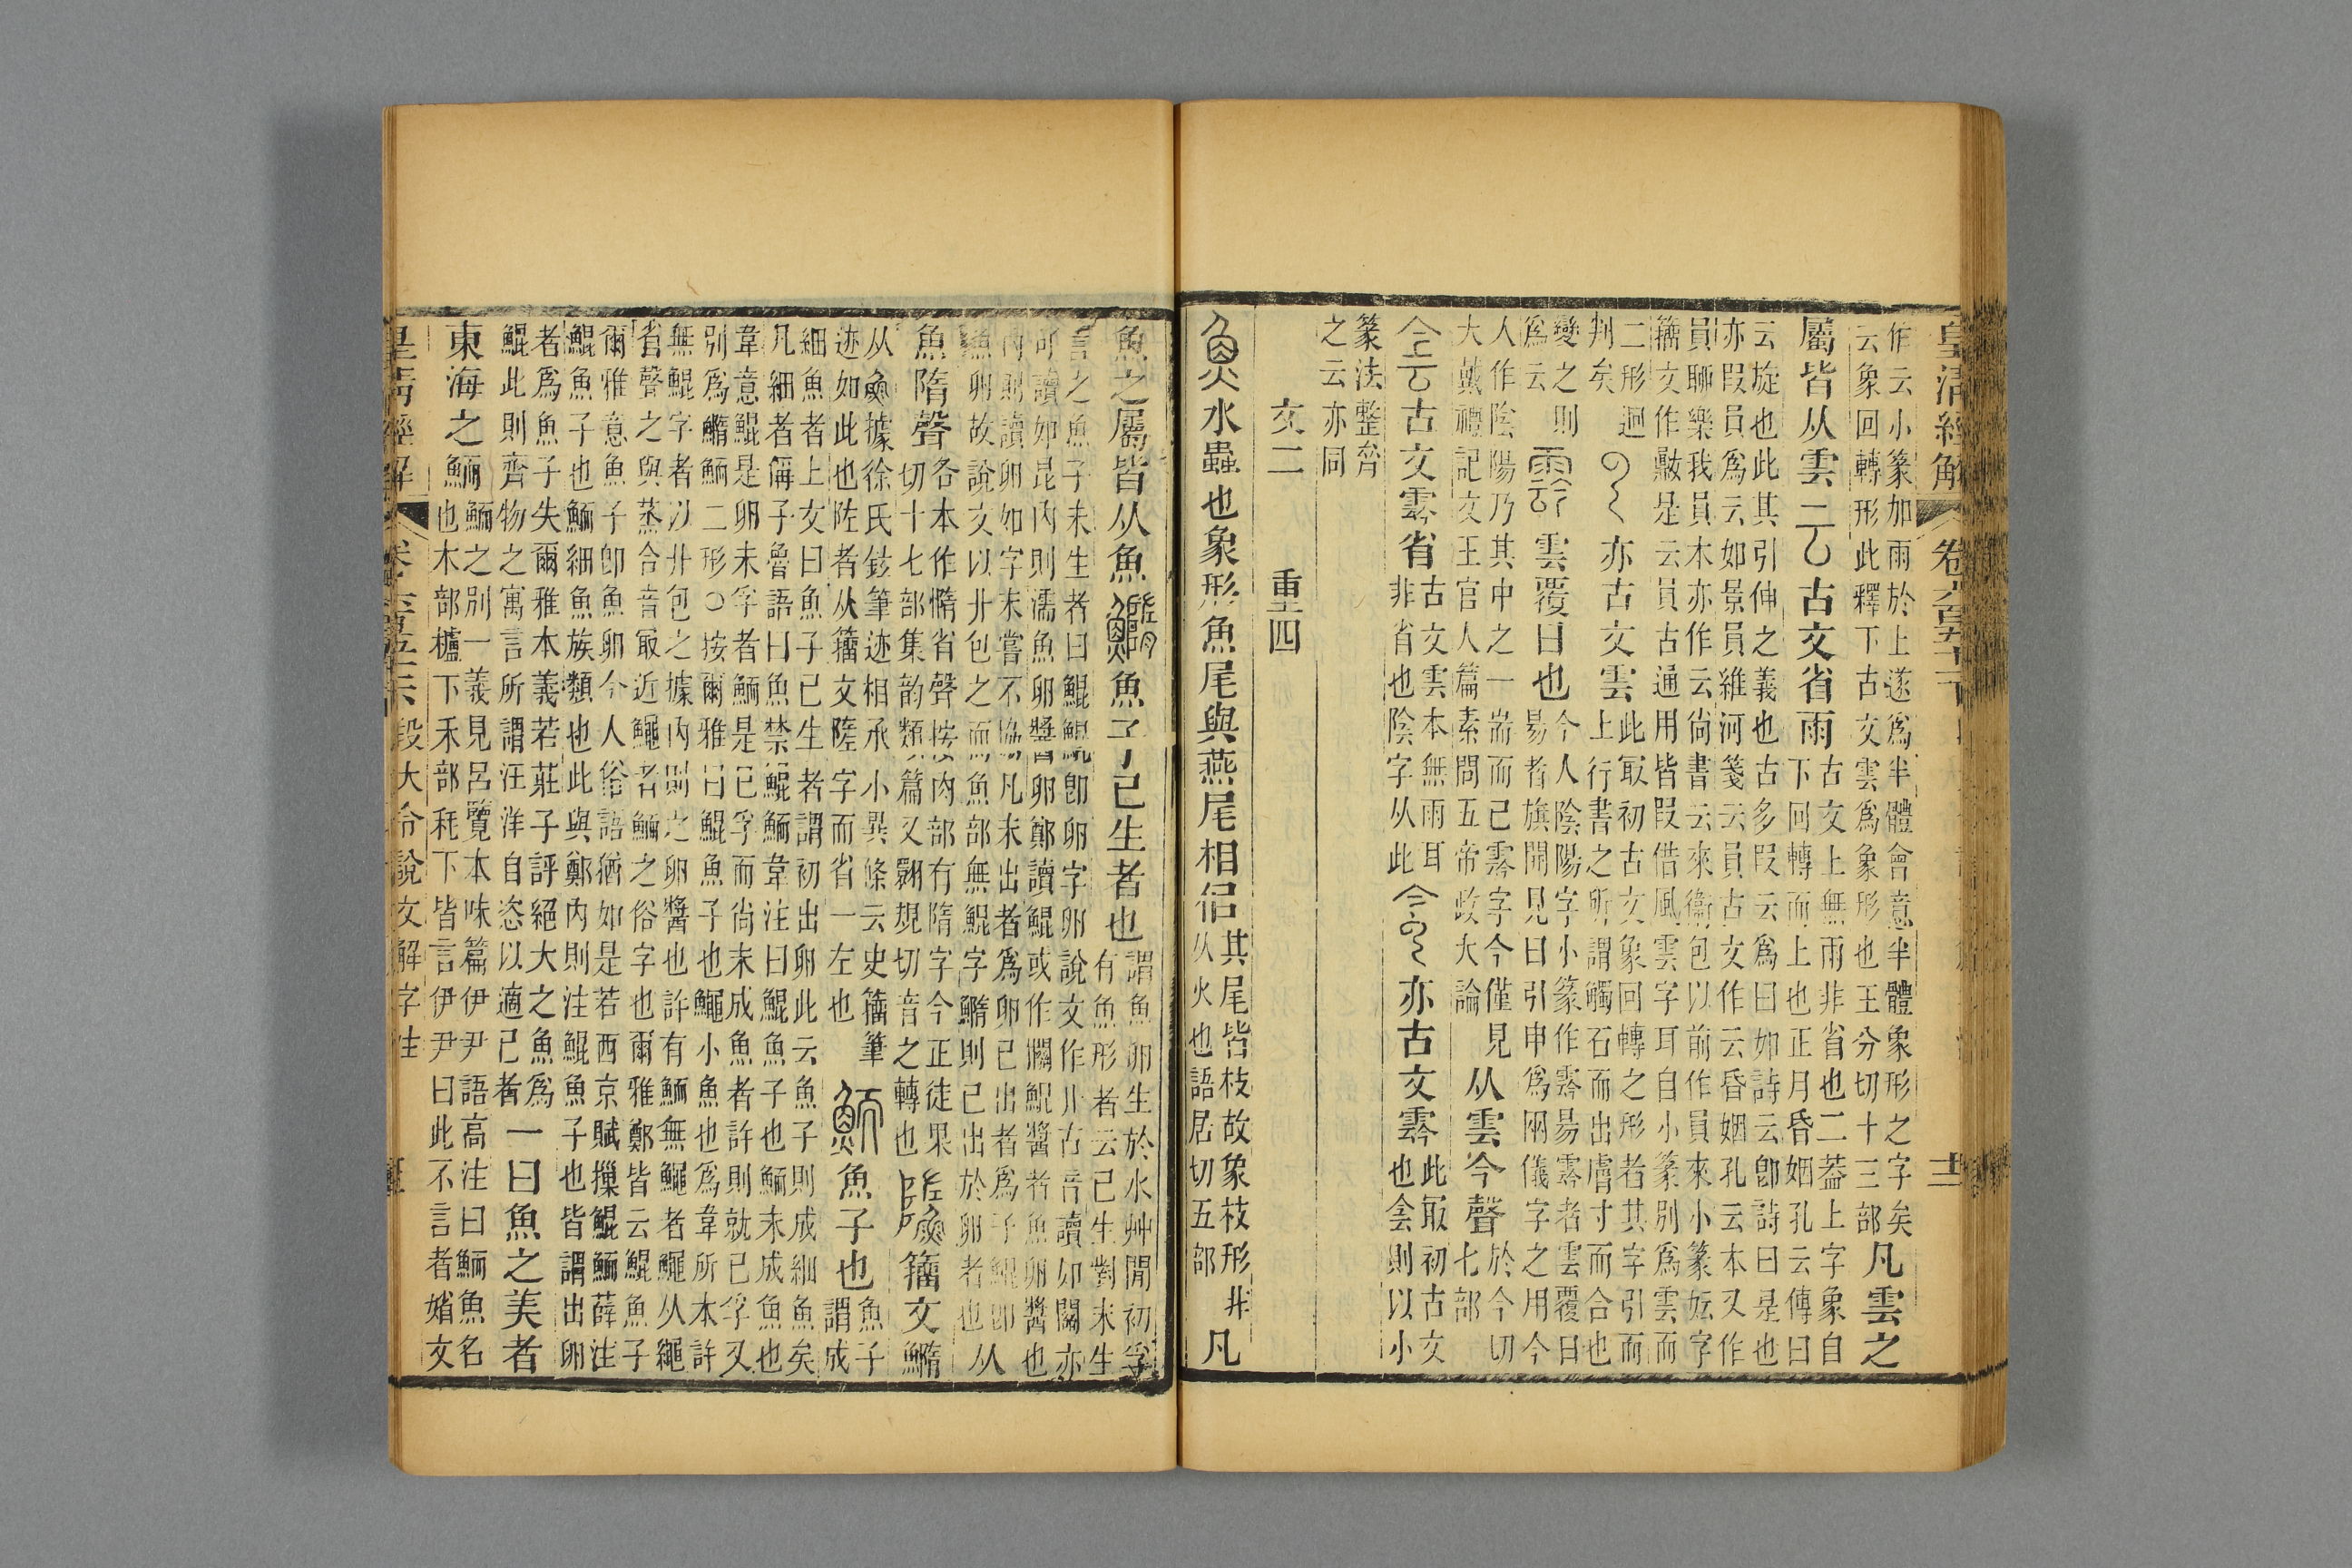 皇清經解 卷六百五十一 十二
作云小篆加雨於上遂爲半體會意半體象形之字矣
云象回轉形此釋下古文雲爲象形也王分切十三部
凡雲之
屬皆从雲 古文省雨
古文上無雨非省也二葢上字象自
下回轉而上也正月昏姻孔云傳曰
云旋也此其引伸之義也古多叚云爲曰如詩云卽詩曰是也
亦叚員爲云如景員維河箋云員古文作云昏姻孔云本又作
員聊樂我員本亦作云尚書云來衞包以前作員來小篆妘字
籒文作䫟是云員古通用皆叚借風雲字耳自小篆別爲雲而
二形迥
判矣
亦古文雲
此取初古文象回轉之形者其字引而
上行書之所謂觸石而出膚寸而合也
變之則
爲云
霒 雲覆日也
今人陰陽字小篆作霒昜霒者雲覆日
昜者旗開見日引申爲兩儀字之用今
人作陰陽乃其中之一耑而已霒字今僅見
大戴禮記文王官人篇素問五帝政大論
从雲今聲
於今切
七部
古文霒省
古文雲本無雨耳
非省也陰字从此
亦古文霒
此取初古文
也侌則以小
篆法整齊
之云亦同
文二 重四
魚 水蟲也象形魚尾與燕尾相侣
其尾皆枝故象枝形非
从火也語居切五部
凡
魚之屬皆从魚 鰖 魚子已生者也
謂魚卵生於水艸閒初孚
有魚形者云已生對未生
言之魚子未生者曰鯤鯤卽卵字卵說文作卝古音讀如關亦
可讀如昆內則濡魚卵醬卵鄭讀鯤或作攔鯤醬者魚卵醬也
內則讀卵如字未嘗不協凡未出者爲卵已出者爲子鯤卽
魚卵故說文以卝包之而魚部無鯤字鰖則已出於卵者也
从
魚隋聲
各本作惰省聲按肉部有隋字今正徒果
切十七部集韵類篇又翾規切音之轉也
籒文鰖
从據徐氏鉉筆迹相承小異條云史籒筆
迹如此也者从籒文隓字而省一左也
鮞 魚子也
魚子
謂成
細魚者上文曰魚子已生者謂初出卵此云魚子則成細魚矣
凡細者偁子魯語曰魚禁鯤鮞韋注曰鯤魚子也鮞未成魚也
韋意鯤是卵未孚者鮞是已孚而尚未成魚者許則就已孚又
別爲鰖鮞二形○按爾雅曰鯤魚子也鱦小魚也爲韋所本許
無鯤字者以卝包之據內則之卵醬也許有鮞無鱦者鱦从繩
省聲之與蒸合音冣近鱦者鮞之俗字也爾雅鄭皆云鯤魚子
爾雅意魚子卽魚卵今人俗語猶如是若西京賦摷鯤鮞薛注
鯤魚子也鮞細魚族類也此與鄭內則注鯤魚子也皆謂出卵
者爲魚子失爾雅本義若莊子評絕大之魚爲
鯤此則齊物之寓言所謂汪洋自恣以適己者
一曰魚之美者
東海之鮞
鮞之別一義見呂覽本味篇伊尹語高注曰鮞魚名
也木部櫨下禾部秏下皆言伊尹曰此不言者媘文
皇清經解 段大令說文解字注